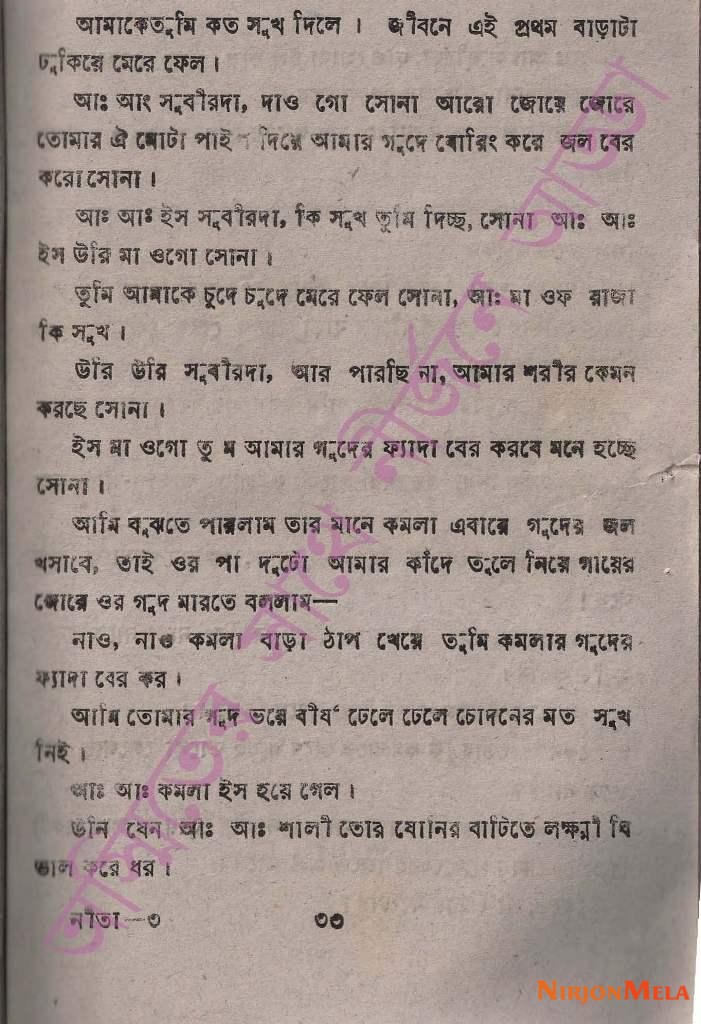 আমাকে তুমি কত সুখ দিলে। জীবনে এই প্রথম বাড়াটা
ঢুকিয়ে মেরে ফেল।
আঃ আং সুবীরদা, দাও গো সোনা আরো জোরে জোরে
তোমার ঐ মোটা পাইপ দিয়ে আমার গুদে বোরিং করে জল বের
করো সোনা।
আঃ আঃ ইস সুবীরদা, কি সুখ তুমি দিচ্ছ, সোনা আঃ আঃ
ইস উরি মা ওগো সোনা।
তুমি আমাকে চুদে চুদে মেরে ফেল সোনা, আঃ মা ওফ রাজা
কি সুখ।
উরি উরি সুবীরদা, আর পারছি না, আমার শরীর কেমন
করছে সোনা।
ইস মা ওগো তু ম আমার গুদের ফ্যাদা বের করবে মনে হচ্ছে
সোনা।
আমি বুঝতে পারলাম তার মানে কমলা এবারে গুদের জল
খসাবে, তাই ওর পা দুটো আমার কাঁদে তুলে নিয়ে গায়ের
জোরে ওর গুদ মারতে বললাম—
নাও, নাও কমলা বাড়া ঠাপ খেয়ে তুমি কমলার গুদের
ফ্যাদা বের কর।
আমি তোমার গুদ ভরে বীর্য ঢেলে ঢেলে চোদনের মত সুখ
নিই।
আঃ আঃ কমলা ইস হয়ে গেল।
উনি যেন আঃ আঃ শালী তোর যোনির বাটিতে লক্ষ্মী ঘি
ভাল করে ধর।
নীতা—৩ ৩৩
NIRJONMELA